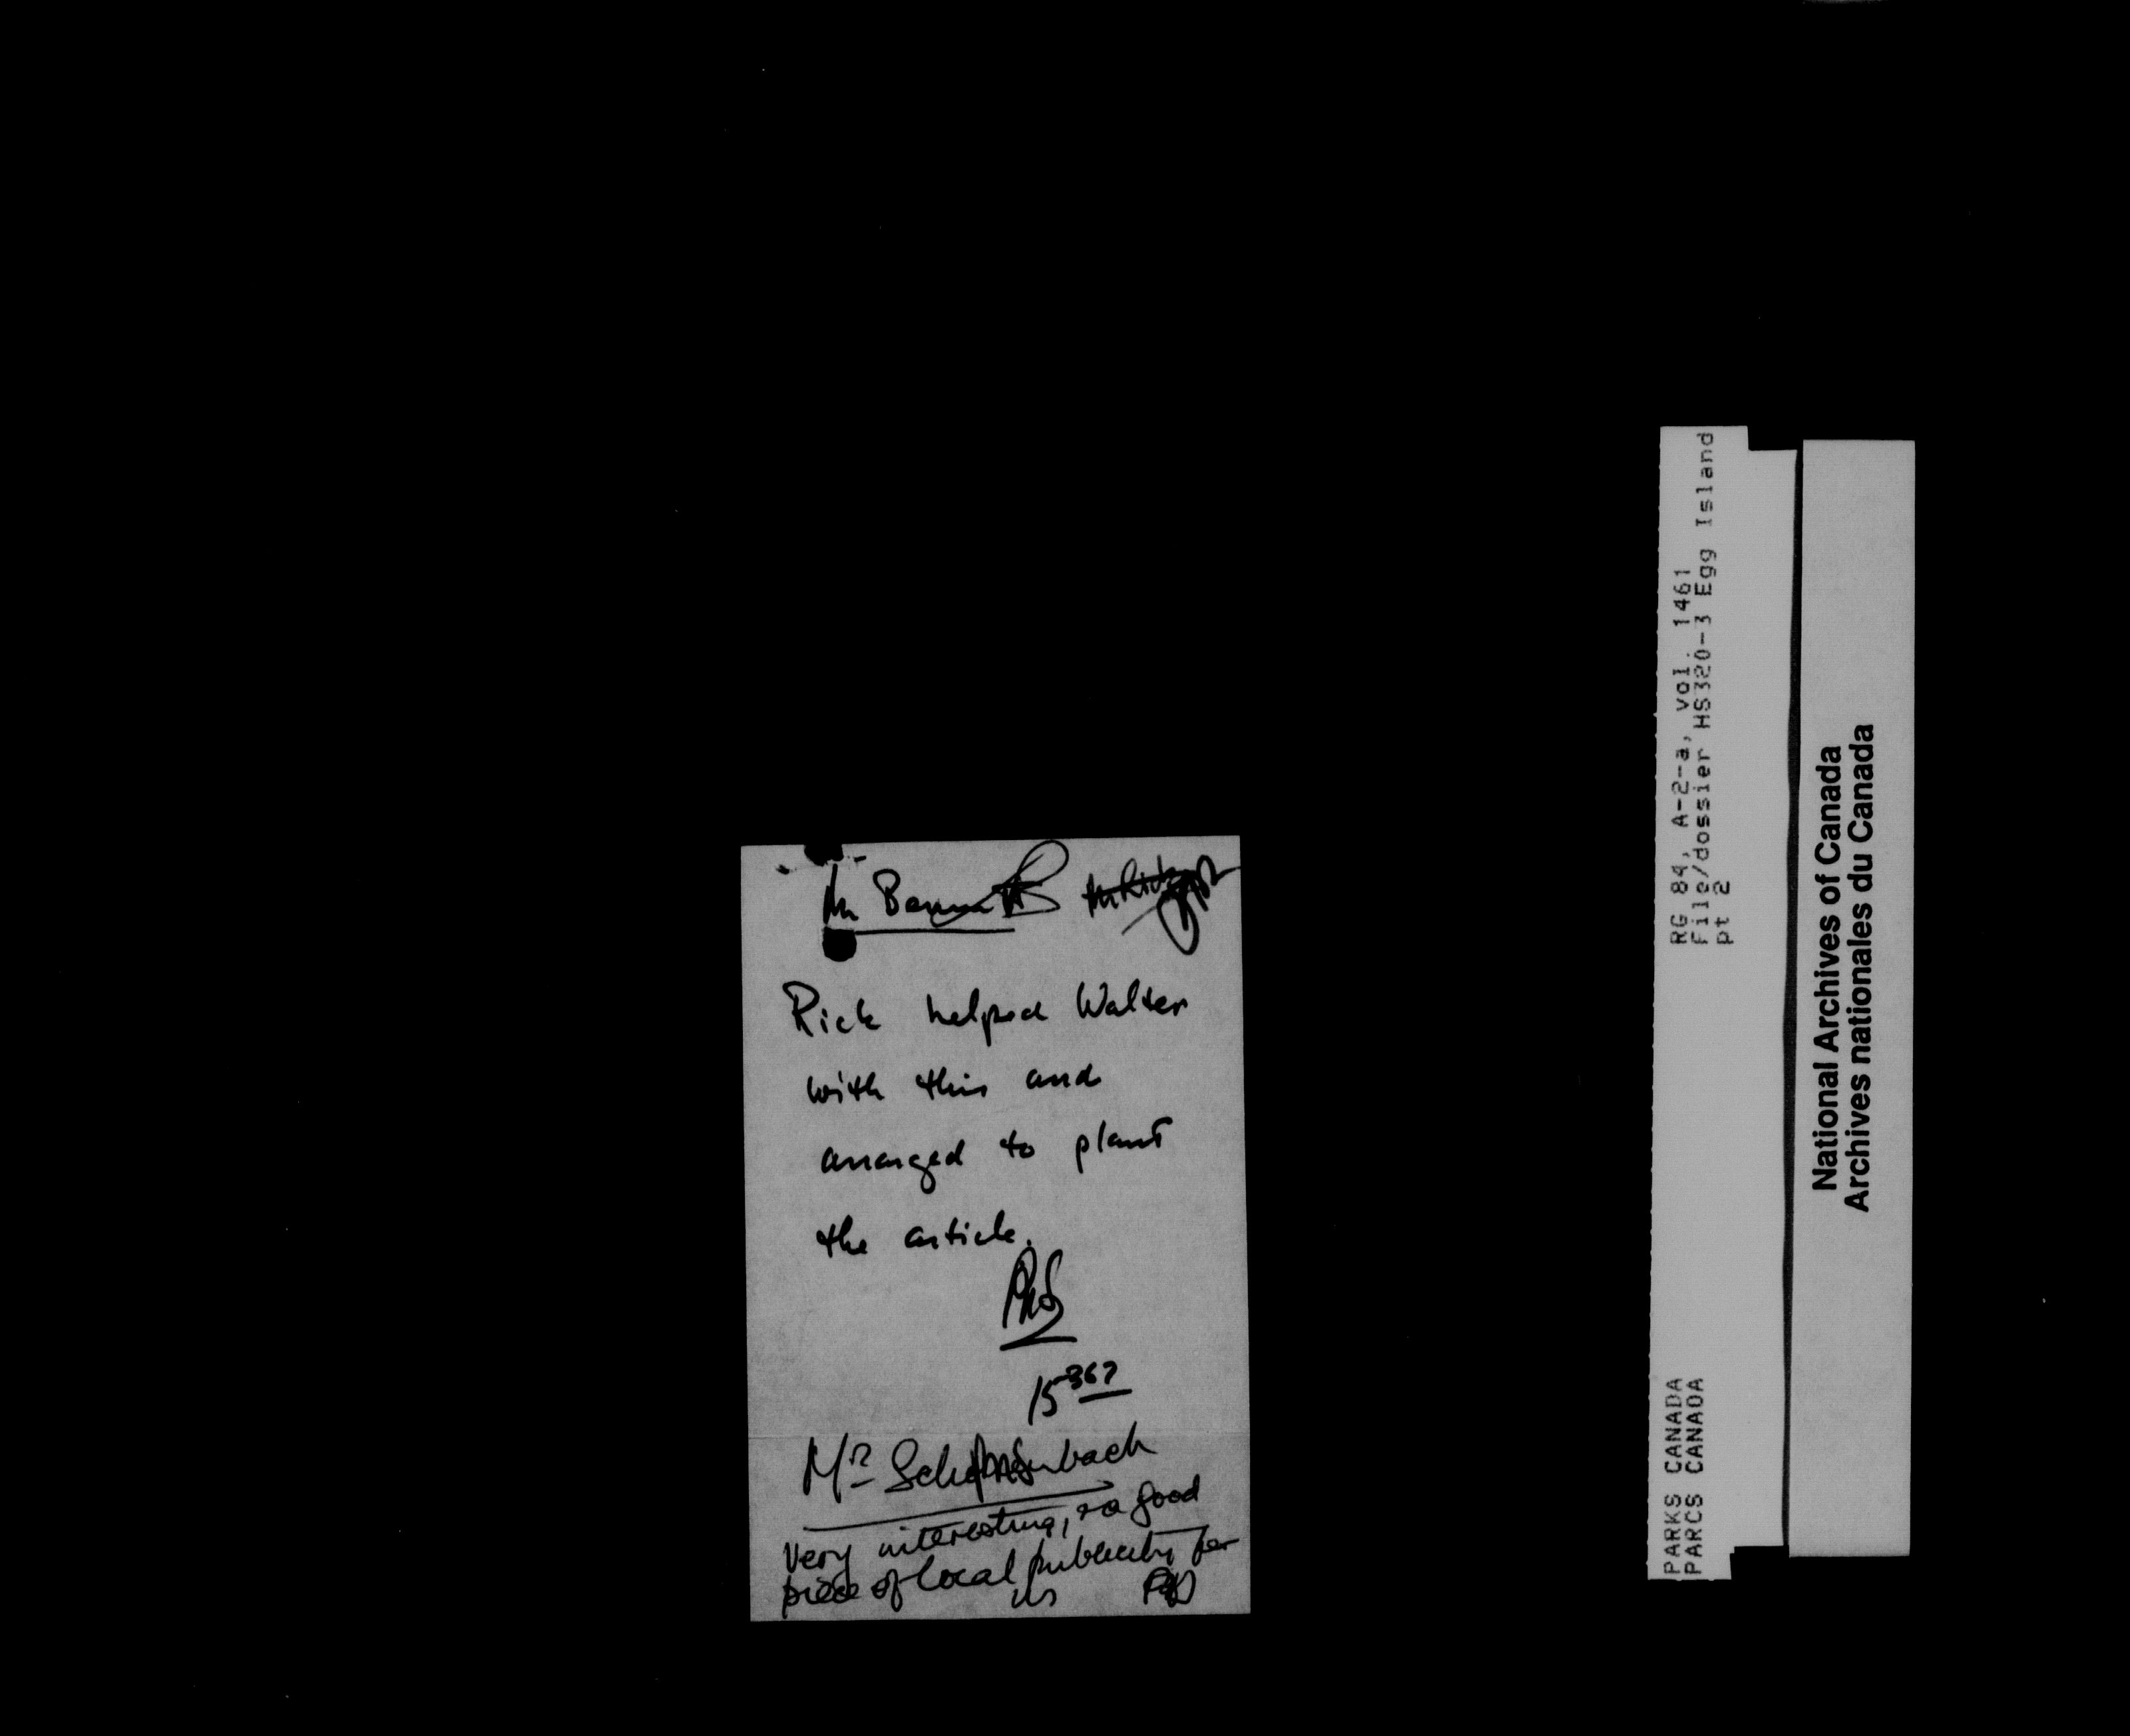 Mr Bennett
Rick helped Walter
with this and
arranged to plant
the article.
15 3 67
Mr Schonenbach
Very interesting, & a good
piece of local publicity for
us
RG 84, A-2-a, vol. 1461
File/dossier HS320-3 Egg Island
pt 2
PARKS CANADA
PARCS CANADA
National Archives of Canada
Archives nationales du Canada